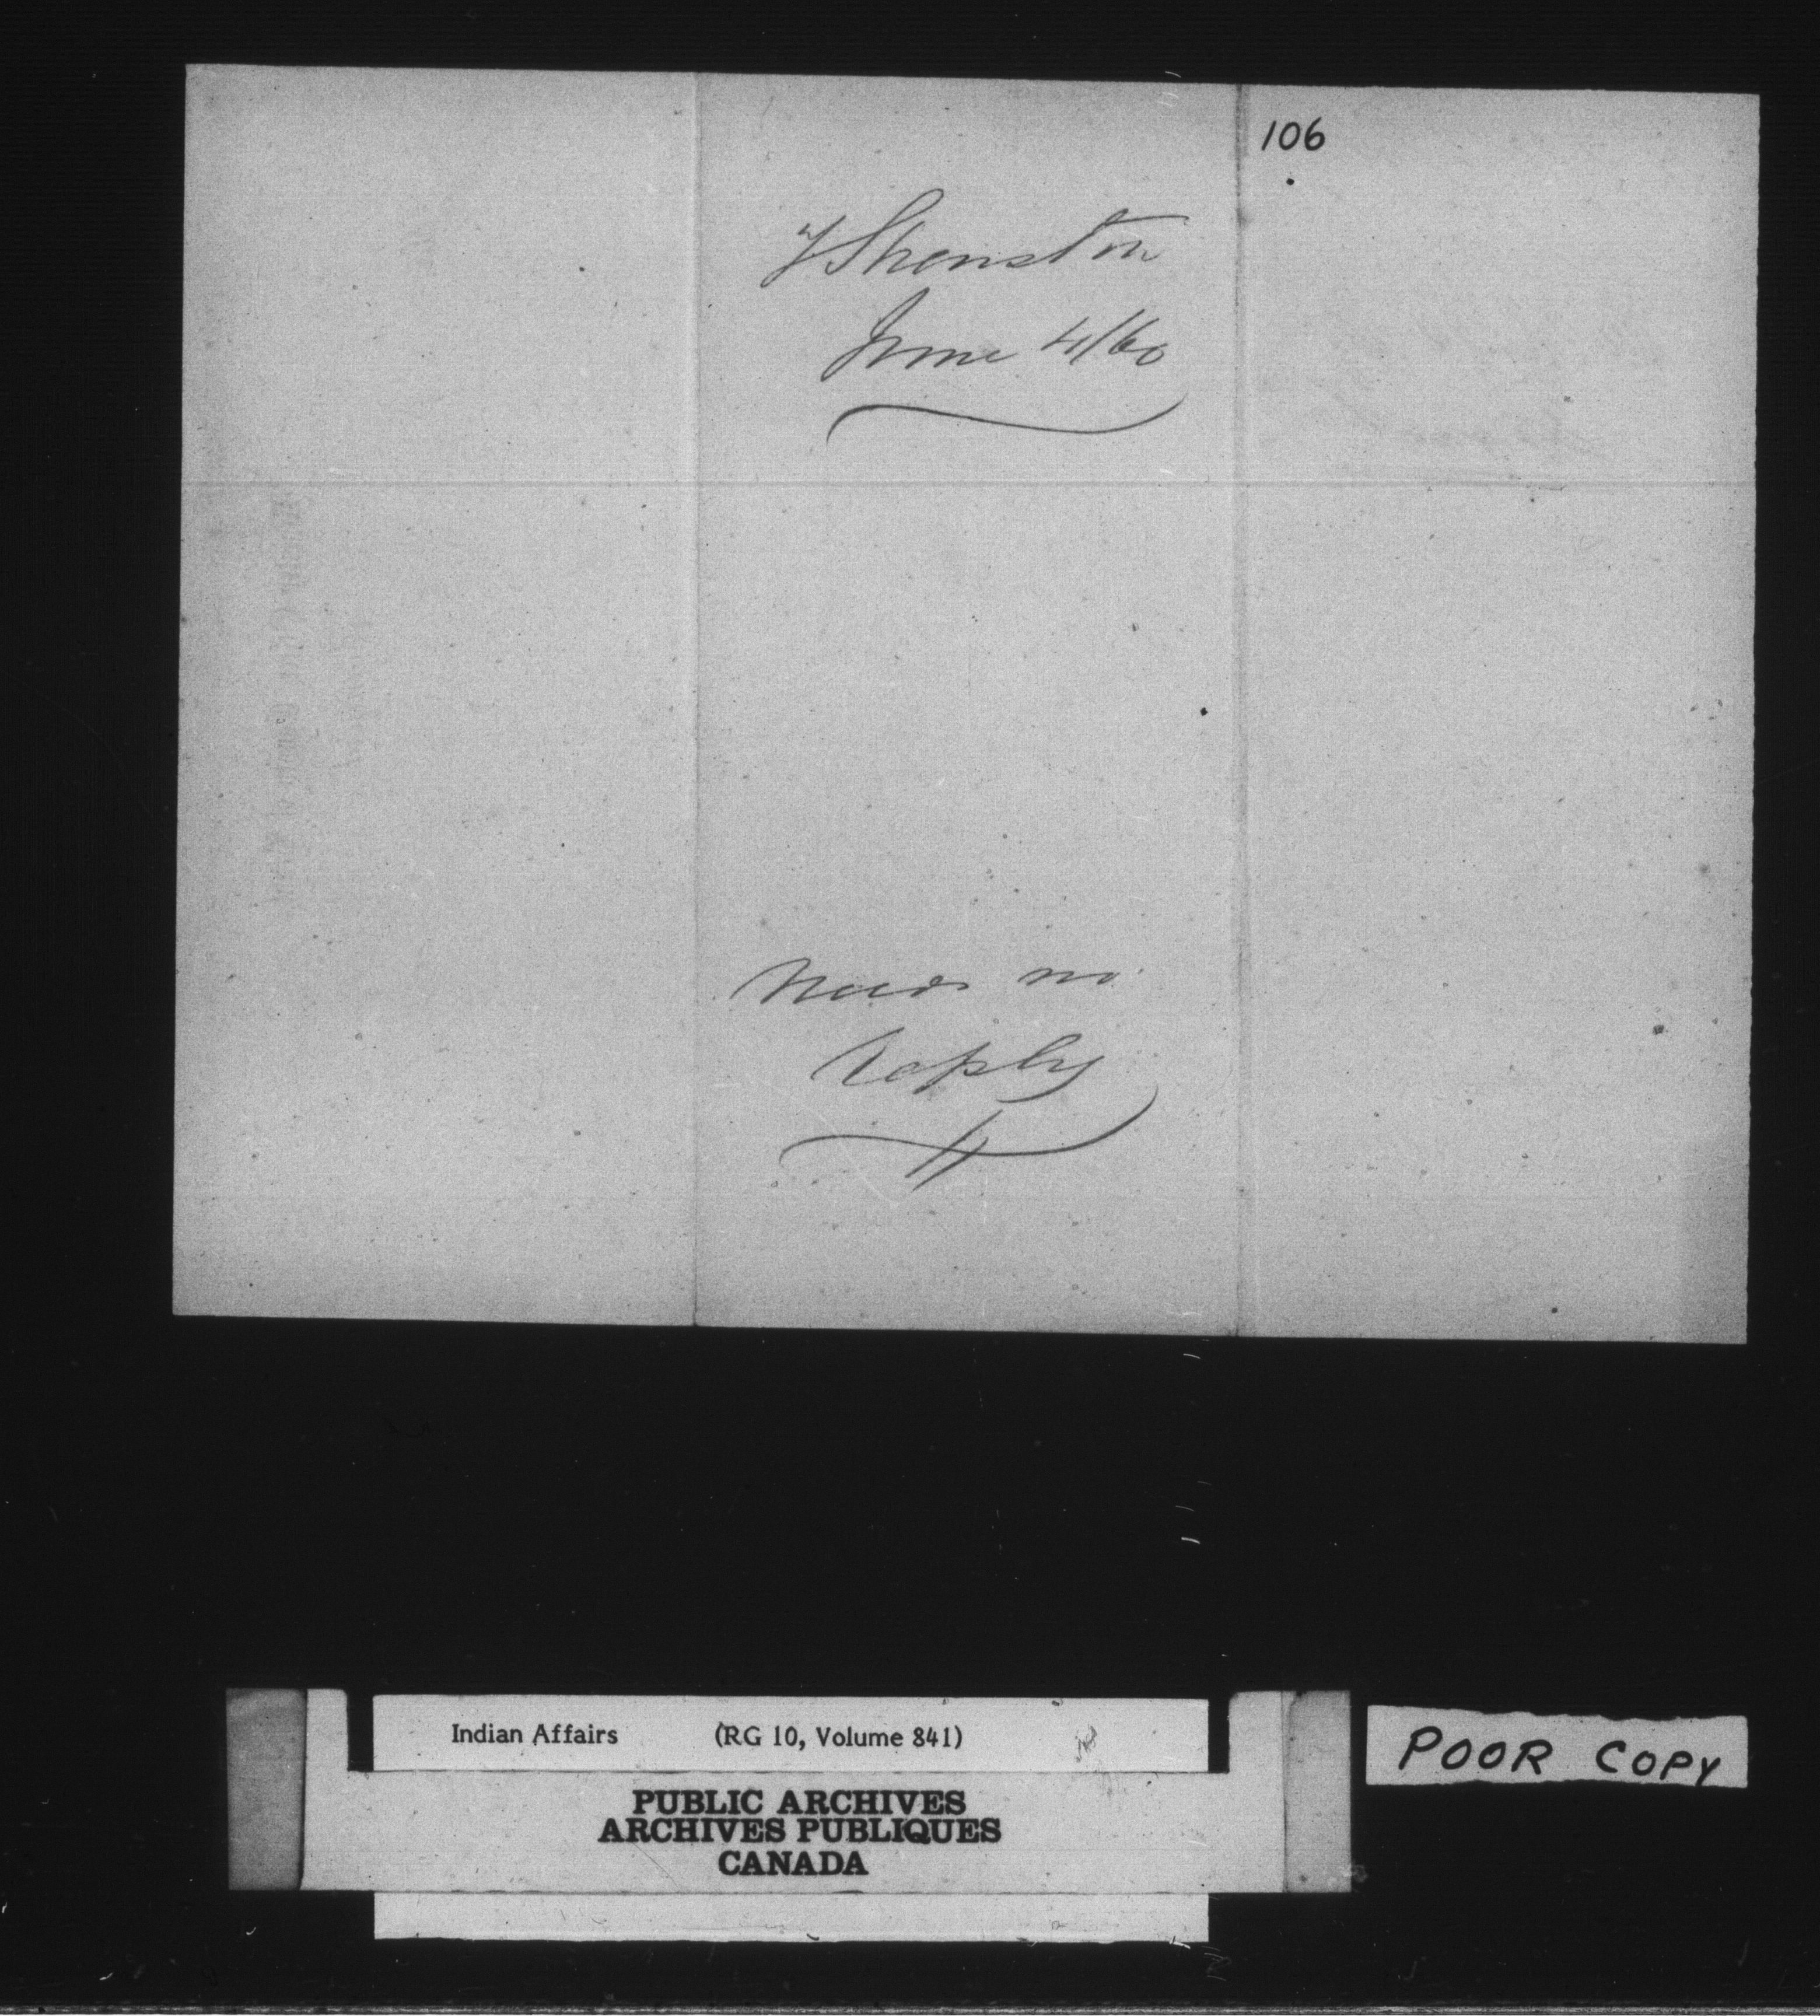 106
T Shenston
June 4/60
Needs no
reply
Indian Affairs (RG 10, Volume 841)
PUBLIC ARCHIVES
ARCHIVES PUBLIQUES
CANADA
POOR COPY